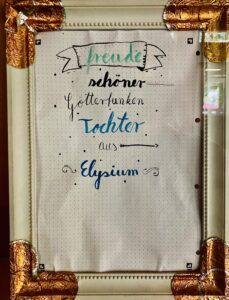 freude
schöner
Götterfunken
Tochter
aus
Elysium